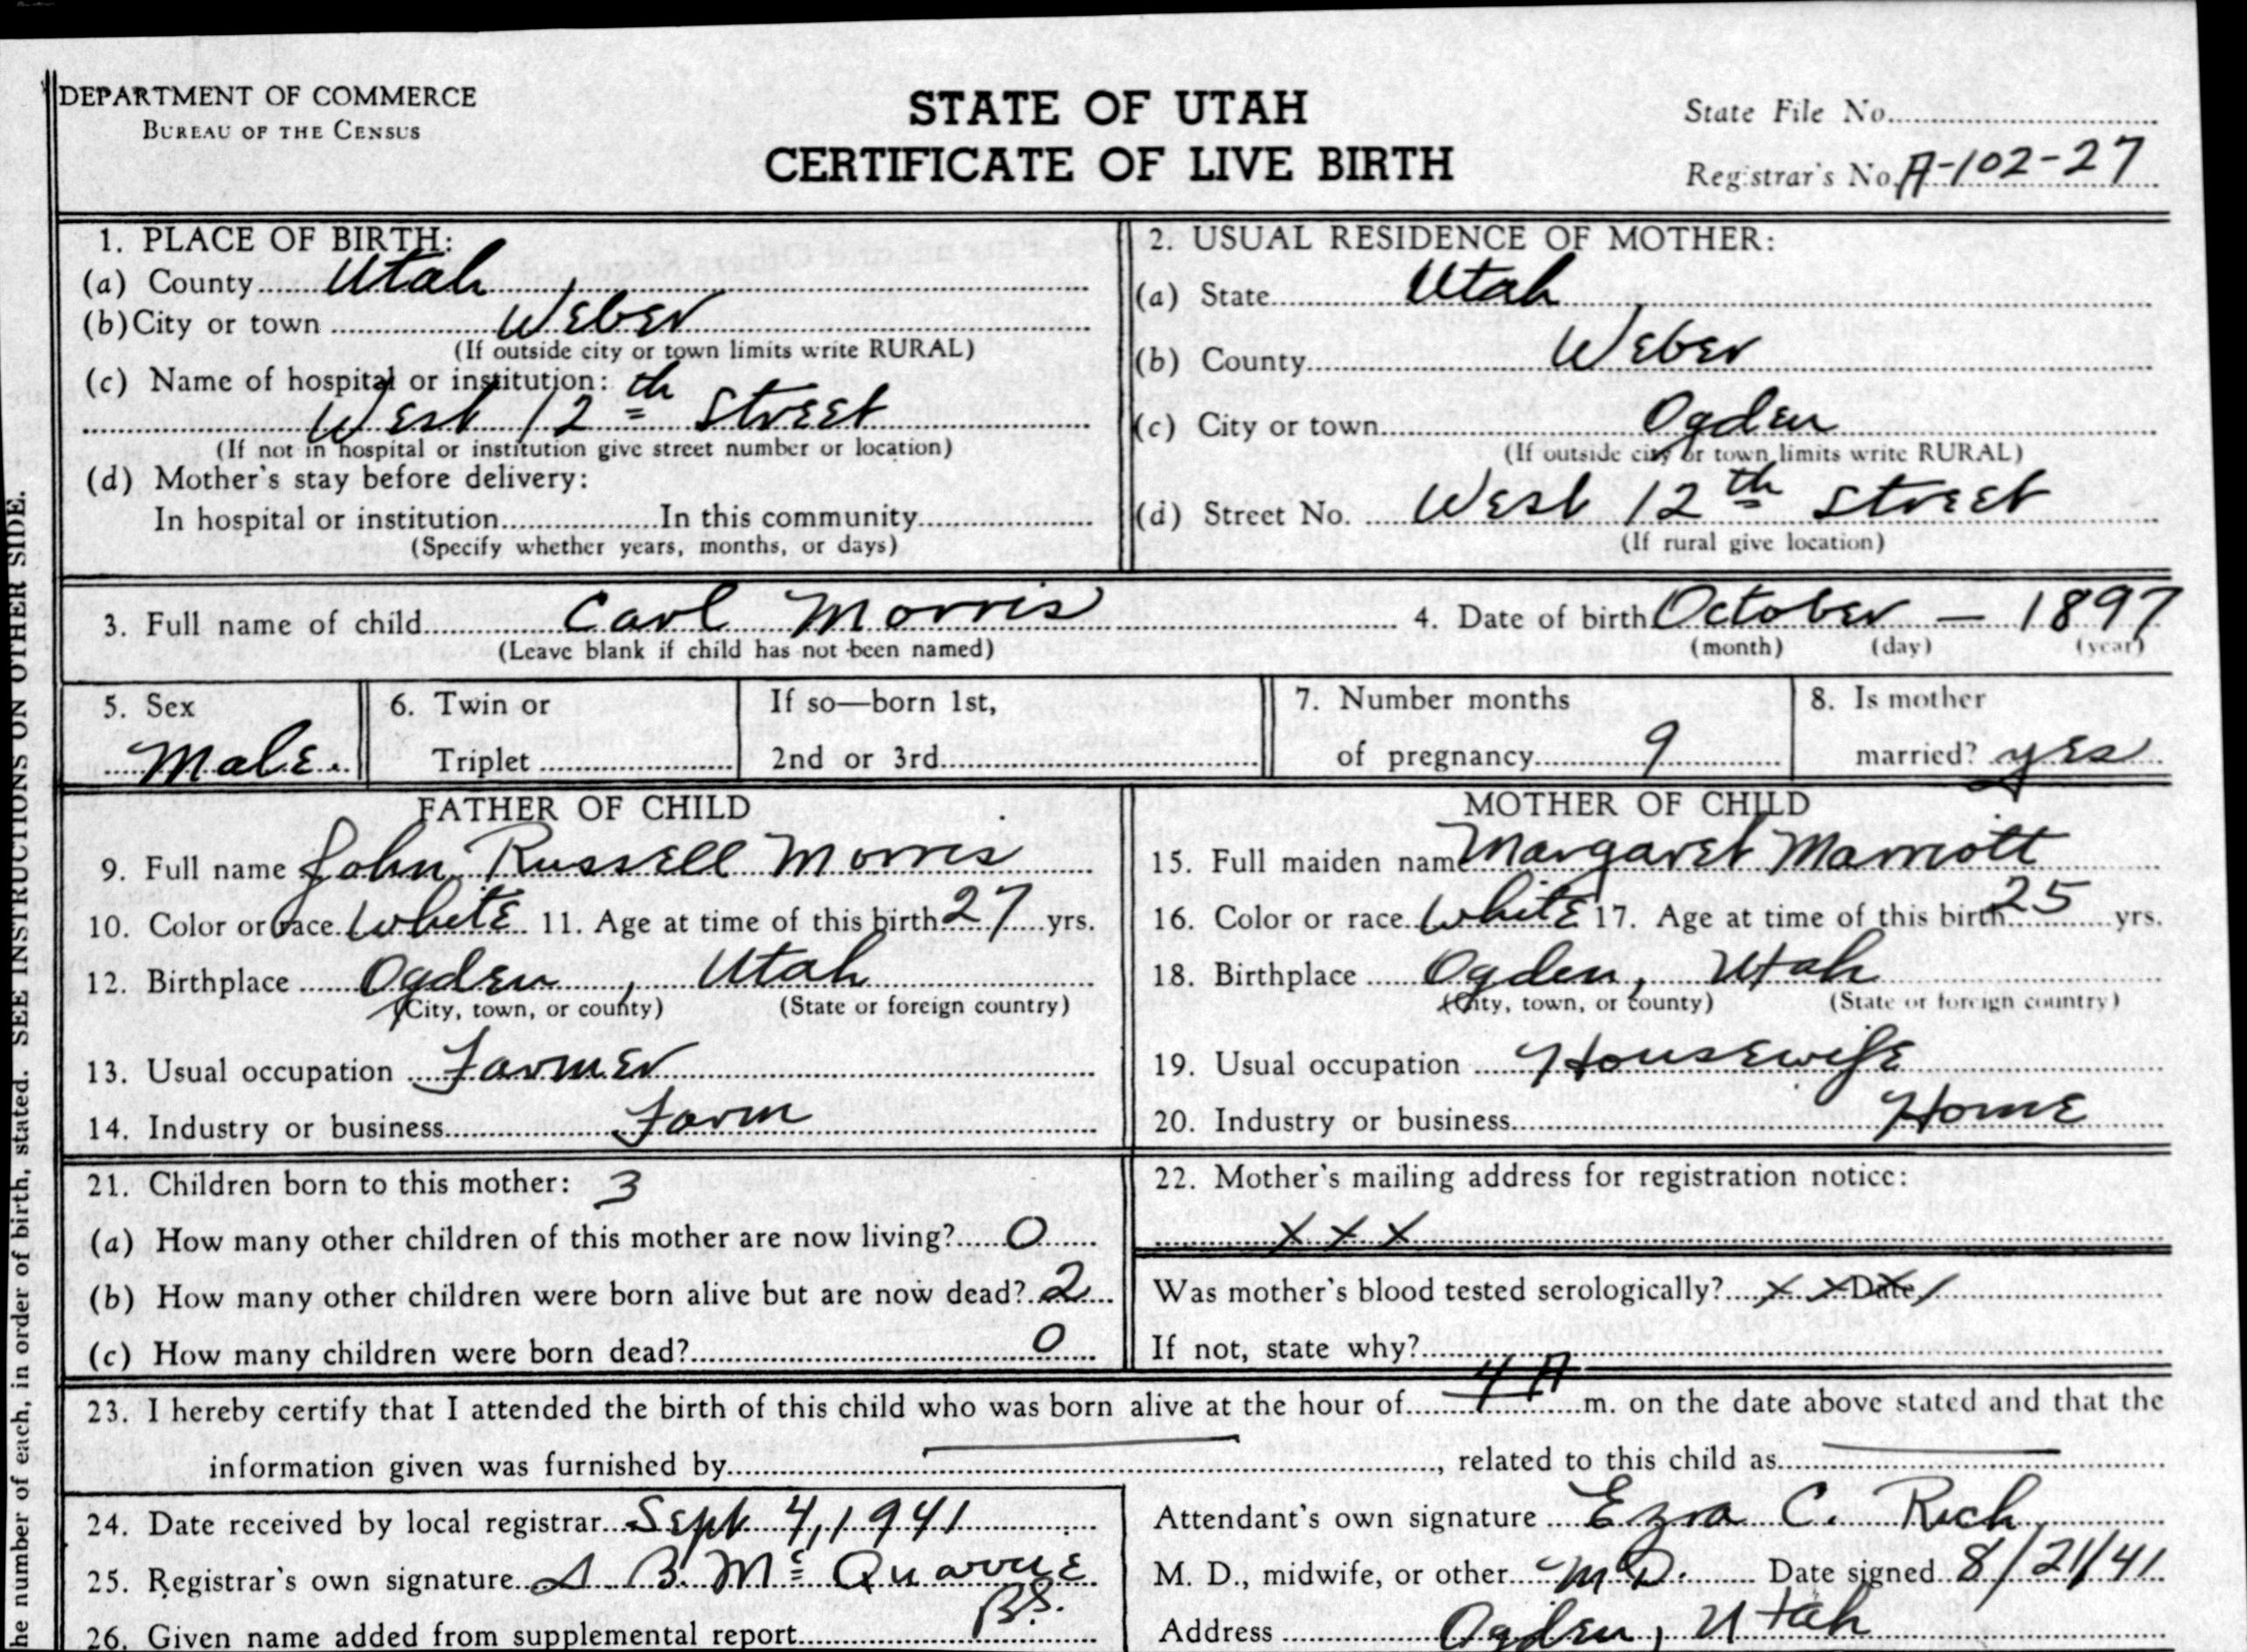 DEPARTMENT OF COMMERCE
BUREAU OF THE CENSUS
STATE OF UTAH
CERTIFICATE OF LIVE BIRTH
State File No.
Registrar's No. A-102-27
1. PLACE OF BIRTH:
(a) County Utah
(b) City or town Weber
(If outside city or town limits write RURAL)
(c) Name of hospital or institution:
West 12th Street
(If not in hospital or institution give street number or location)
(d) Mother's stay before delivery:
In hospital or institution In this community
(Specify whether years, months, or days)
2. USUAL RESIDENCE OF MOTHER:
(a) State Utah
(b) County Weber
(c) City or town Ogden
(If outside city or town limits write RURAL)
(d) Street No. West 12th Street
(If rural give location)
3. Full name of child Carl Morris 4. Date of birth October — 1897
(Leave blank if child has not been named) (month) (day) (year)
5. Sex
Male.
6. Twin or
Triplet
If so—born 1st,
2nd or 3rd
7. Number months
of pregnancy 9
8. Is mother
married? yes
FATHER OF CHILD
9. Full name John Russell Morris
10. Color or race White 11. Age at time of this birth 27 yrs.
12. Birthplace Ogden, Utah
(City, town, or county) (State or foreign country)
13. Usual occupation Farmer
14. Industry or business Farm
MOTHER OF CHILD
15. Full maiden name Margaret Marriott
16. Color or race White 17. Age at time of this birth 25 yrs.
18. Birthplace Ogden, Utah
(City, town, or county) (State or foreign country)
19. Usual occupation Housewife
20. Industry or business Home
21. Children born to this mother: 3
(a) How many other children of this mother are now living? 0
(b) How many other children were born alive but are now dead? 2
(c) How many children were born dead? 0
22. Mother's mailing address for registration notice:
X X X
Was mother's blood tested serologically? X X Date
If not, state why?
23. I hereby certify that I attended the birth of this child who was born alive at the hour of 4 A m. on the date above stated and that the
information given was furnished by , related to this child as
24. Date received by local registrar Sept 4, 1941
25. Registrar's own signature B. Mc Quarrie
B.S.
26. Given name added from supplemental report
Attendant's own signature Ezra C. Rich
M. D., midwife, or other M.D. Date signed 8/21/41
Address Ogden, Utah
he number of each, in order of birth, stated. SEE INSTRUCTIONS ON OTHER SIDE.